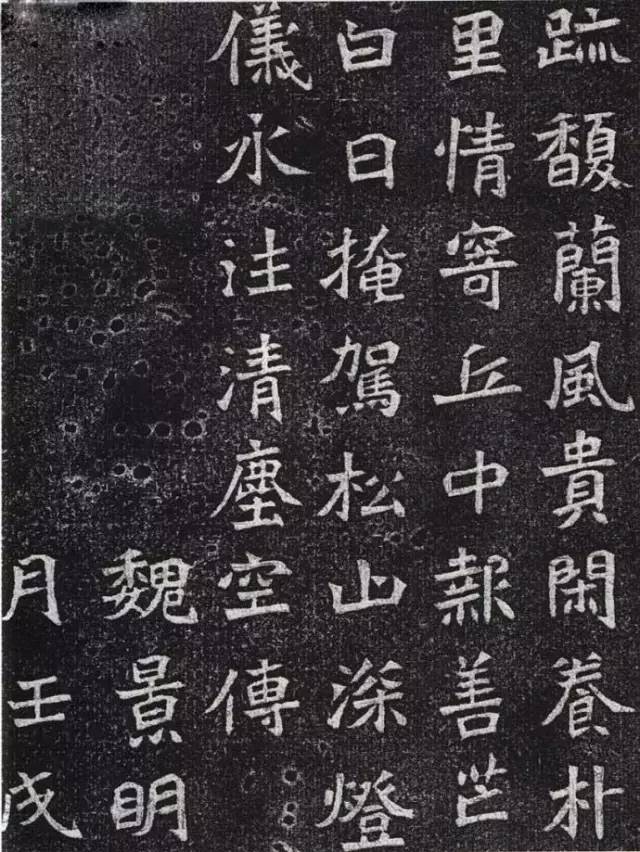 疏馥蘭風貴閑養朴
里情寄丘中報善芒
白日掩駕松山深燈
儀永注清塵空傳
魏景明
月壬戌